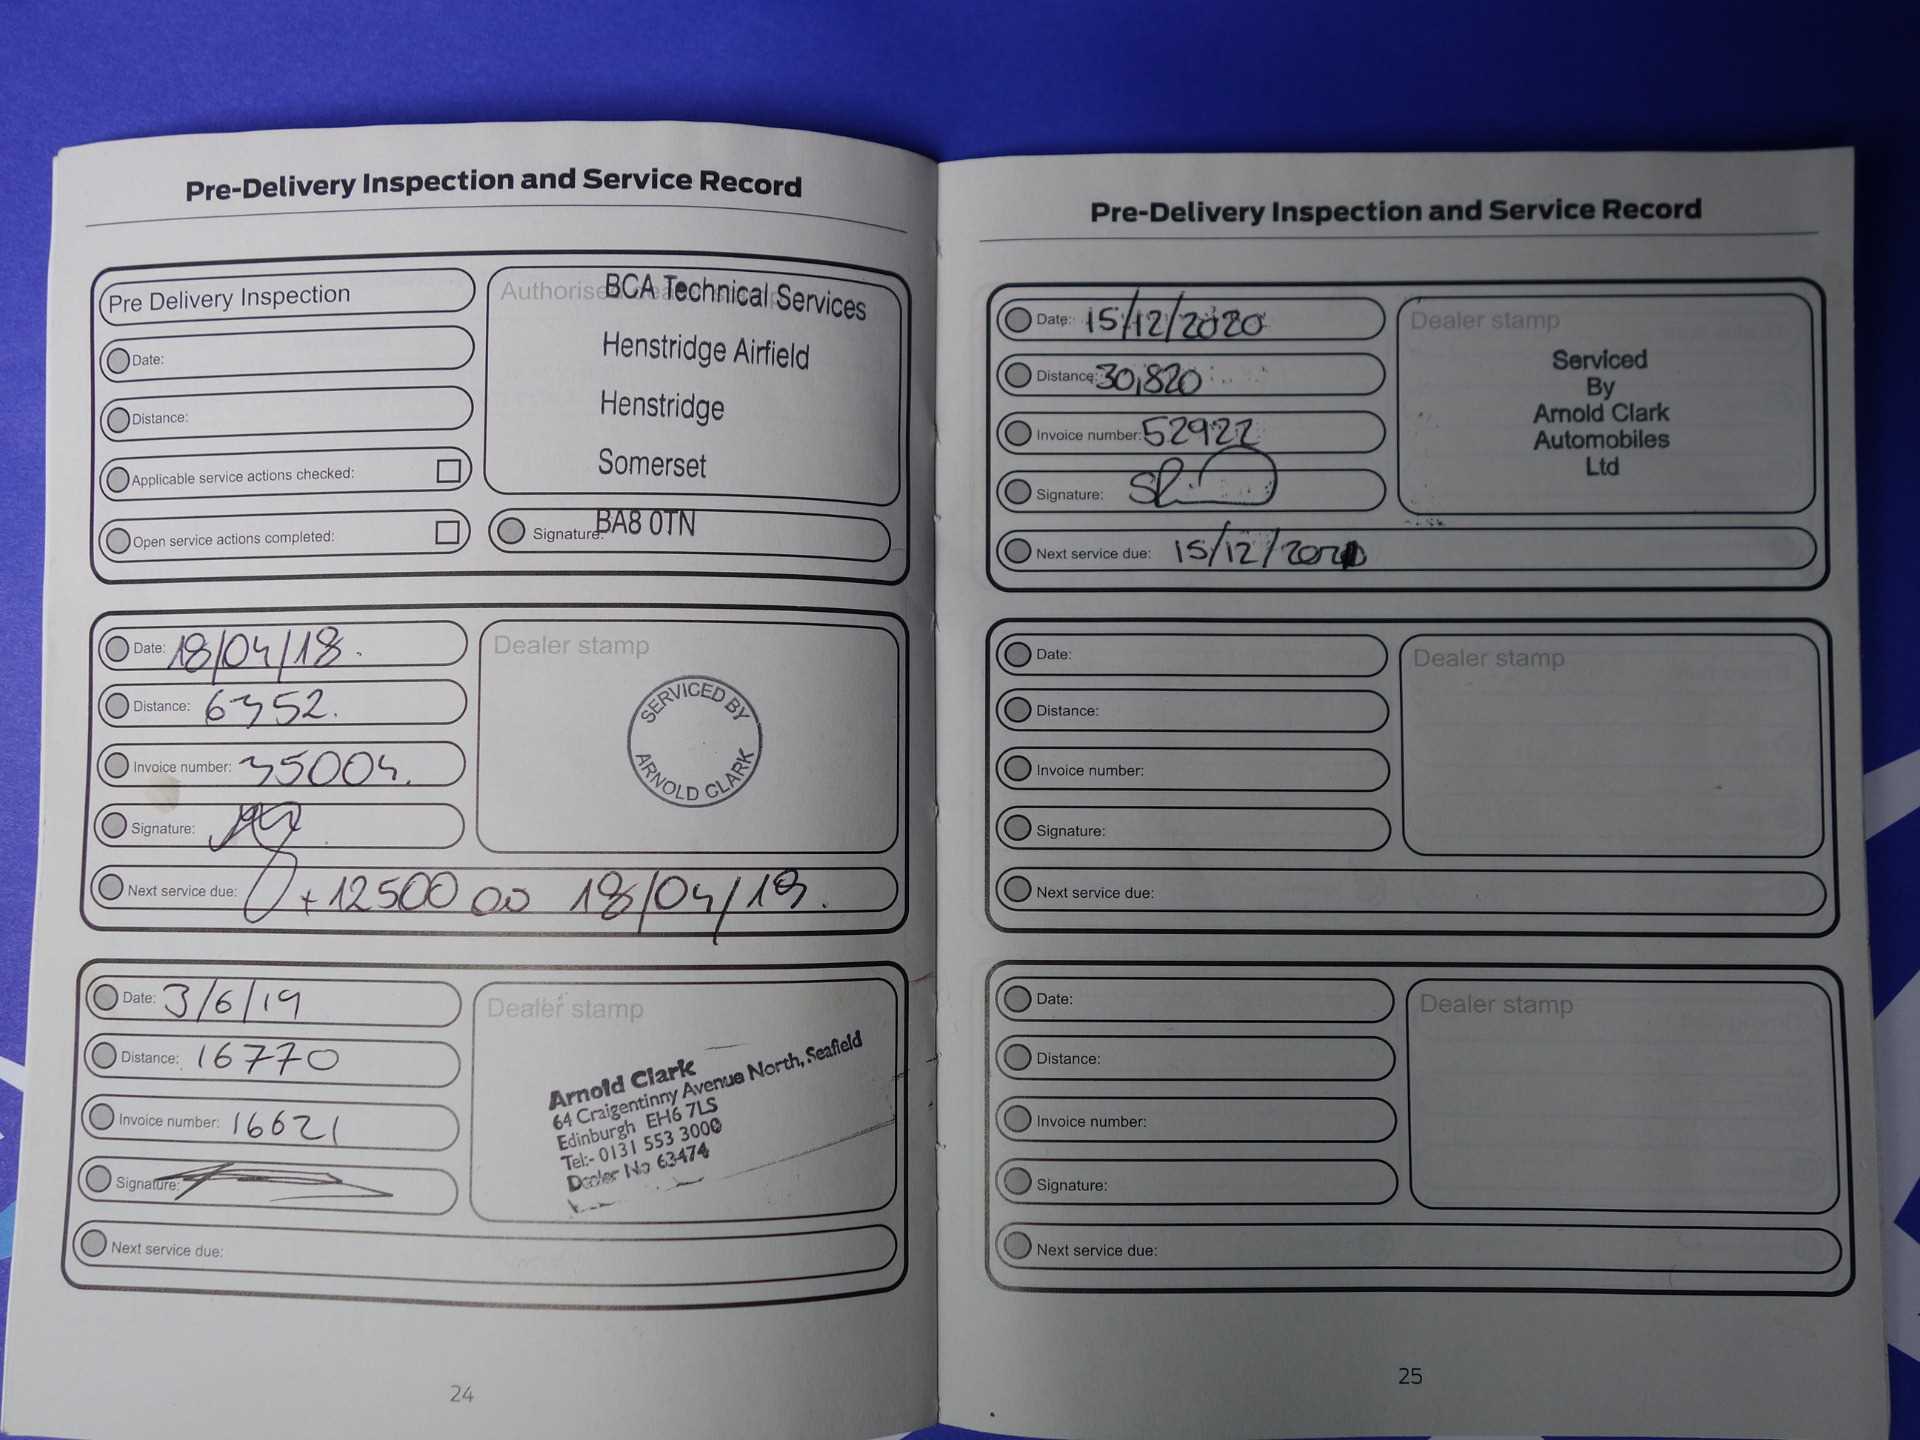 Pre-Delivery Inspection and Service Record
Pre Delivery Inspection
Date:
Distance:
Applicable service actions checked:
Open service actions completed:
Authorised dealer stamp
BCA Technical Services
Henstridge Airfield
Henstridge
Somerset
BA8 0TN
Signature:
Date: 18/04/18.
Distance: 6352.
Invoice number: 35004.
Signature:
Next service due: +12500 00 18/04/19.
Dealer stamp
SERVICED BY
ARNOLD CLARK
Date: 3/6/19
Distance: 16770
Invoice number: 16621
Signature:
Next service due:
Dealer stamp
Arnold Clark
64 Craigentinny Avenue North, Seafield
Edinburgh EH6 7LS
Tel:- 0131 553 3000
Dealer No 63474
24
Pre-Delivery Inspection and Service Record
Date: 15/12/2020
Distance: 30,820
Invoice number: 52922
Signature:
Next service due: 15/12/2021
Dealer stamp
Serviced
By
Arnold Clark
Automobiles
Ltd
Date:
Distance:
Invoice number:
Signature:
Next service due:
Dealer stamp
Date:
Distance:
Invoice number:
Signature:
Next service due:
Dealer stamp
25